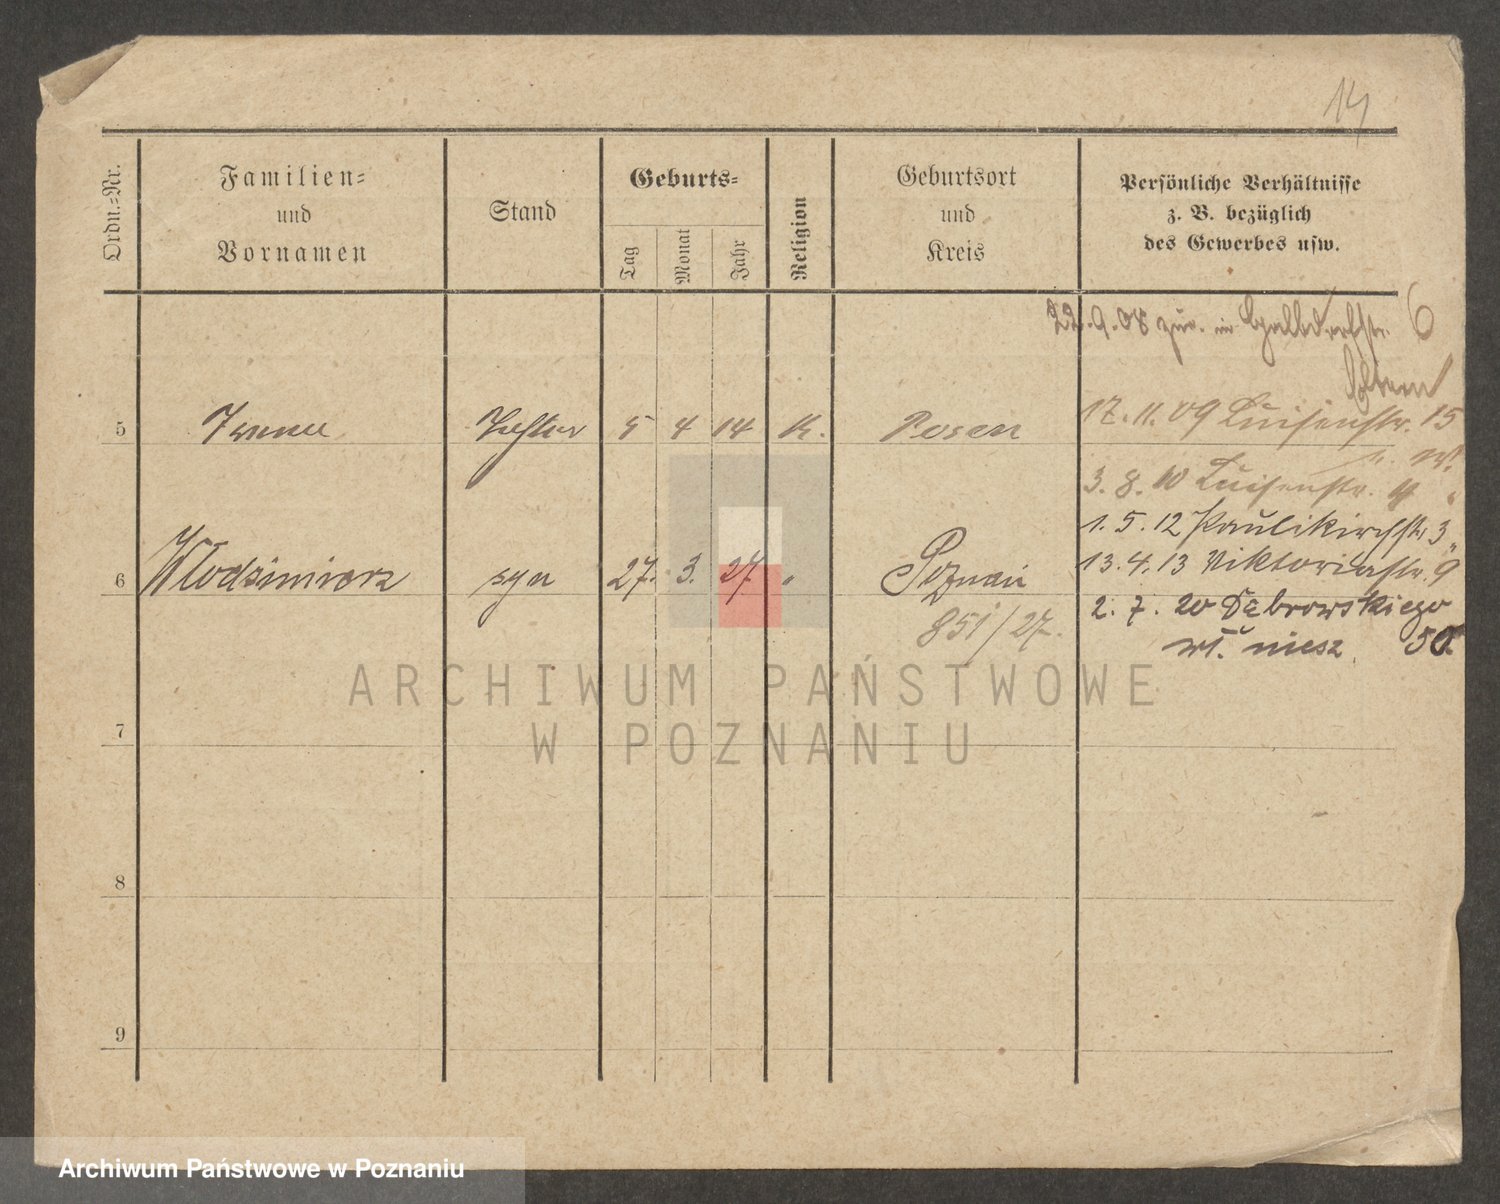 14
Ordn.-Nr.
Familien-
und
Vornamen
Stand
Geburts-
Tag
Monat
Jahr
Religion
Geburtsort
und
Kreis
Persönliche Verhältnisse
z. B. bezüglich
des Gewerbes usw.
22.9.08 zur. in 6
Eltern
17.11.09 Luisenstr. 15
5 Irene Tochter 5 4 14 K. Posen
3.8.10 Luisenstr. 4 "
1.5.12 Paulikirchstr 3 "
13.4.13 Viktoriastr. 9
6 Włodzimierz syn 27. 3. 27 " Poznań
2.7.20 Dąbrowskiego
851/27. wł. miesz 50.
7
8
9
ARCHIWUM PAŃSTWOWE
W POZNANIU
Archiwum Państwowe w Poznaniu